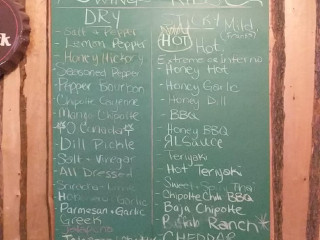 DRY
Salt & Pepper
- Lemon Pepper
- Honey Hickory
Seasoned Pepper
- Pepper Bourbon
Chipotle Cayenne
- Mango Chipotle
- $O Canada$
- Dill Pickle
- Salt & Vinegar
- All Dressed
- Parmesan & Garlic
Green
Jalapeno
Mild
HOT Hot,
Extreme or Inferno
- Honey Hot
- Honey Garlic
- Honey Dill
- BBQ
- Honey BBQ
Teriyaki
- Hot Teriyaki
Chipotle BBQ
Baja Chipotle
Ranch*
CHEDDAR